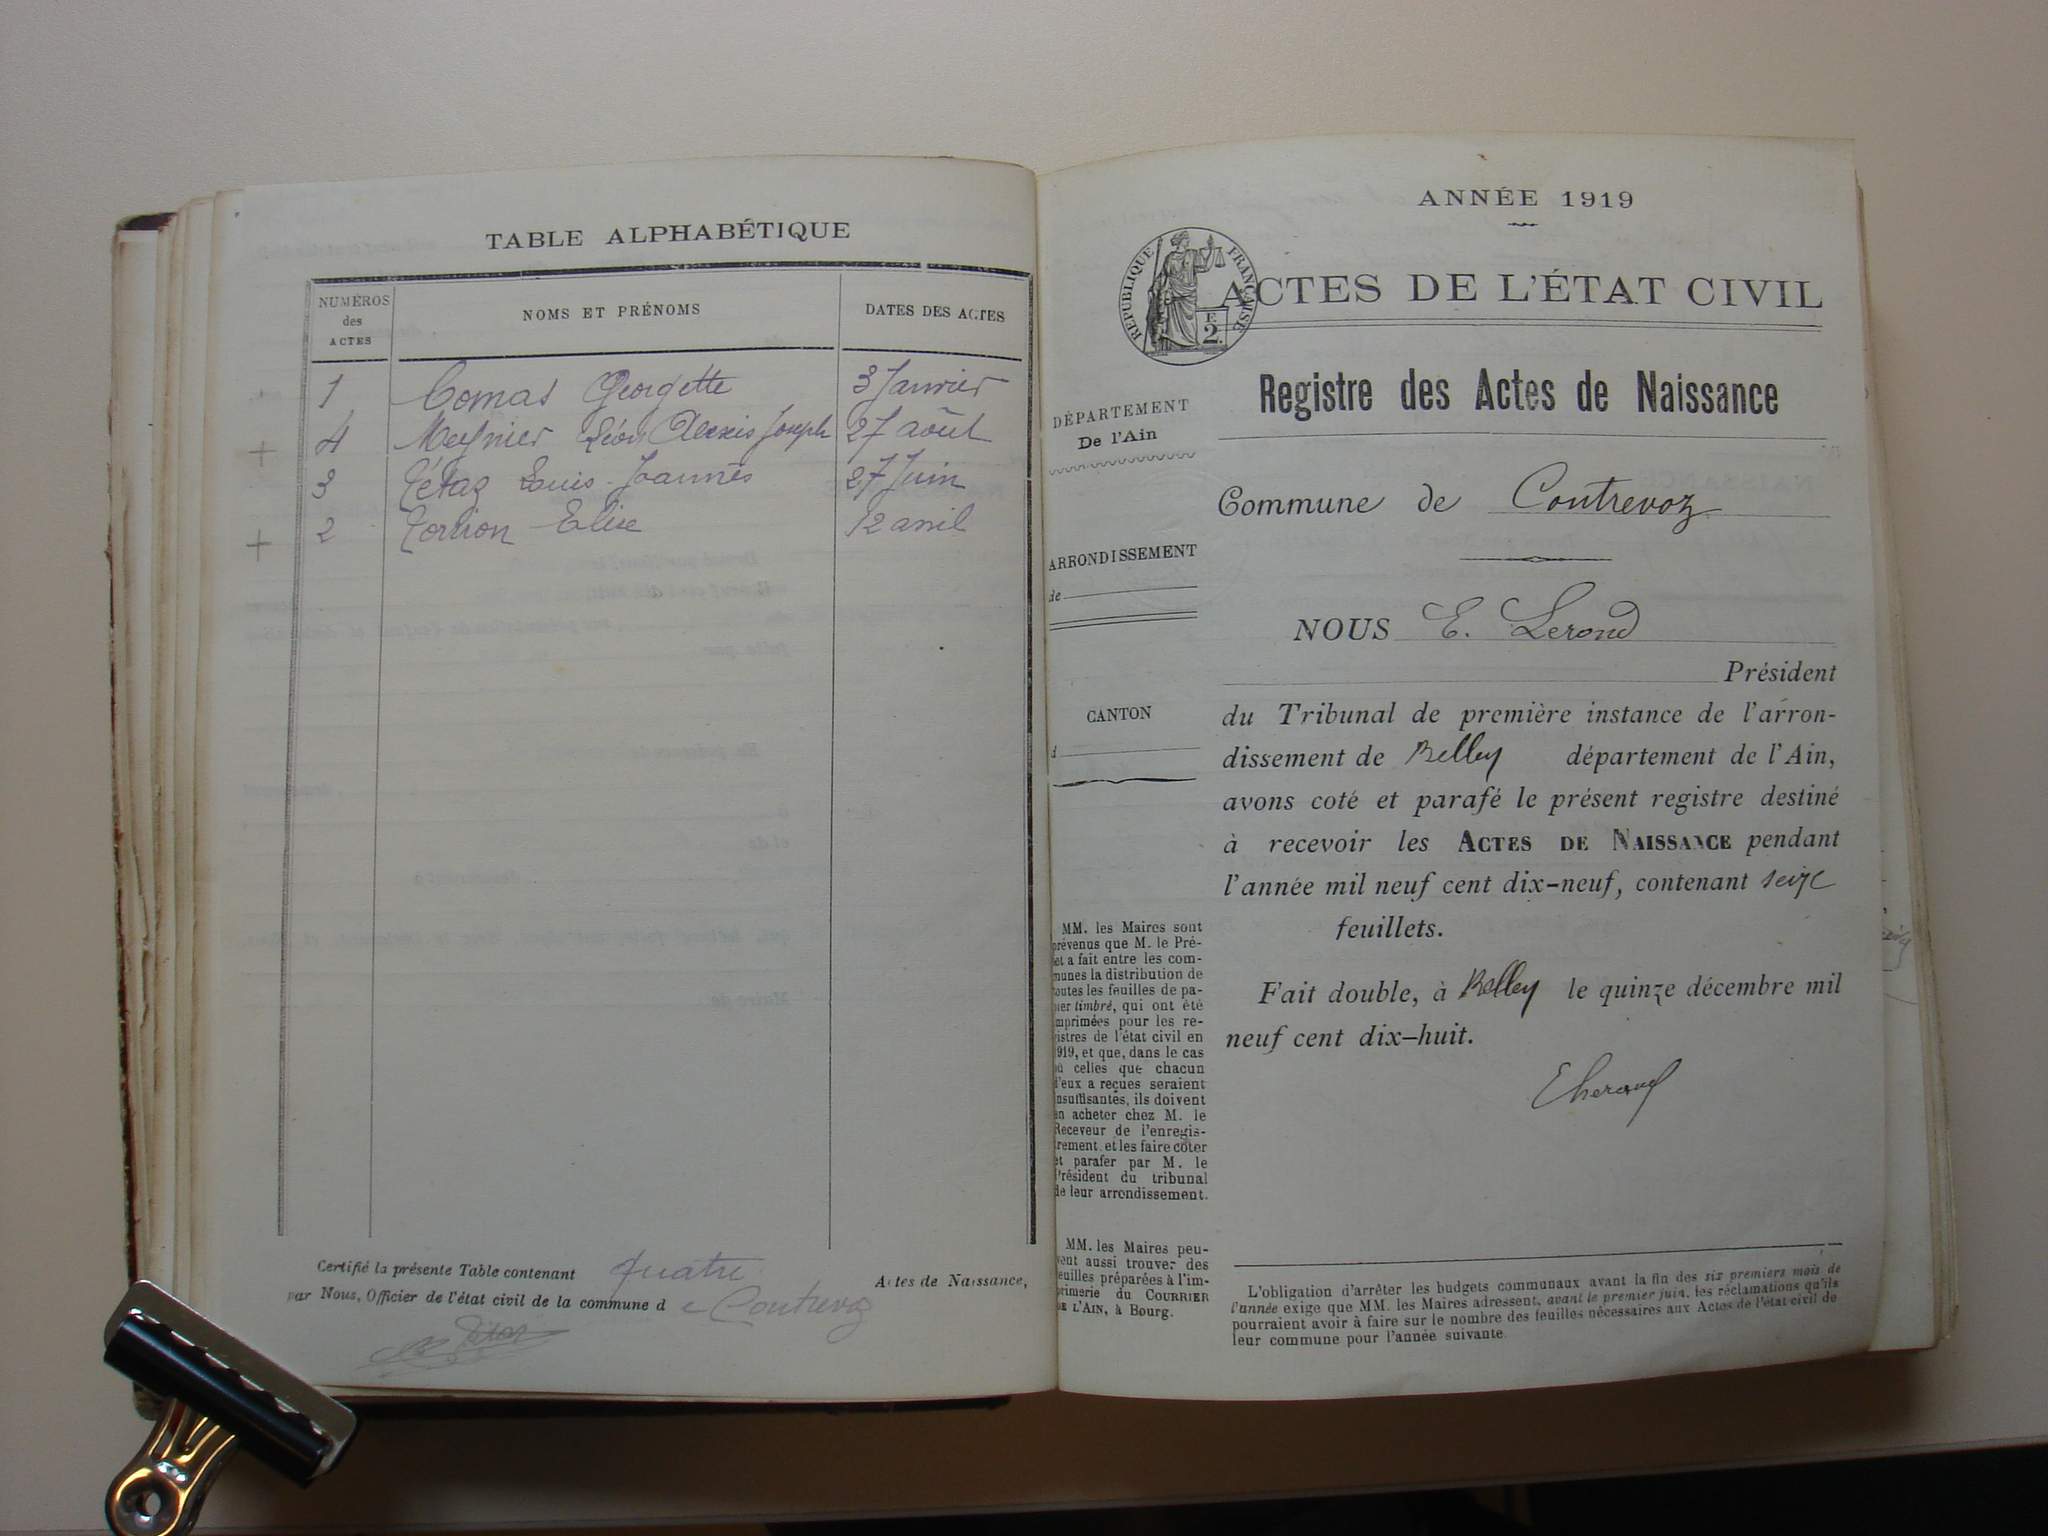 TABLE ALPHABÉTIQUE
NUMÉROS des ACTES
NOMS ET PRÉNOMS
DATES DES ACTES
1 Comas Georgette 3 Janvier
4 Meynier Léon Alexis Joseph 27 août
3 Pétaz Louis Joannès 27 Juin
2 Élise 12 avril
Certifié la présente Table contenant quatre Actes de Naissance,
par Nous, Officier de l'état civil de la commune de Contrevoz
ANNÉE 1919
RÉPUBLIQUE FRANÇAISE
E
2.
ACTES DE L'ÉTAT CIVIL
Registre des Actes de Naissance
DÉPARTEMENT
De l'Ain
ARRONDISSEMENT
de
CANTON
d
MM. les Maires sont
prévenus que M. le Pré-
et a fait entre les com-
munes la distribution de
toutes les feuilles de pa-
pier timbré, qui ont été
imprimées pour les re-
istres de l'état civil en
1919, et que, dans le cas
où celles que chacun
d'eux a reçues seraient
insuffisantes, ils doivent
en acheter chez M. le
Receveur de l'enregis-
trement, et les faire coter
et parafer par M. le
Président du tribunal
de leur arrondissement.
MM. les Maires peu-
vent aussi trouver des
feuilles préparées à l'im-
primerie du COURRIER
DE L'AIN, à Bourg.
Commune de Contrevoz
NOUS E. Lerond
Président
du Tribunal de première instance de l'arron-
dissement de Belley département de l'Ain,
avons coté et parafé le présent registre destiné
à recevoir les ACTES DE NAISSANCE pendant
l'année mil neuf cent dix-neuf, contenant seize
feuillets.
Fait double, à Belley le quinze décembre mil
neuf cent dix-huit.
L'obligation d'arrêter les budgets communaux avant la fin des six premiers mois de
l'année exige que MM. les Maires adressent, avant le premier juin, les réclamations qu'ils
pourraient avoir à faire sur le nombre des feuilles nécessaires aux Actes de l'état civil de
leur commune pour l'année suivante.